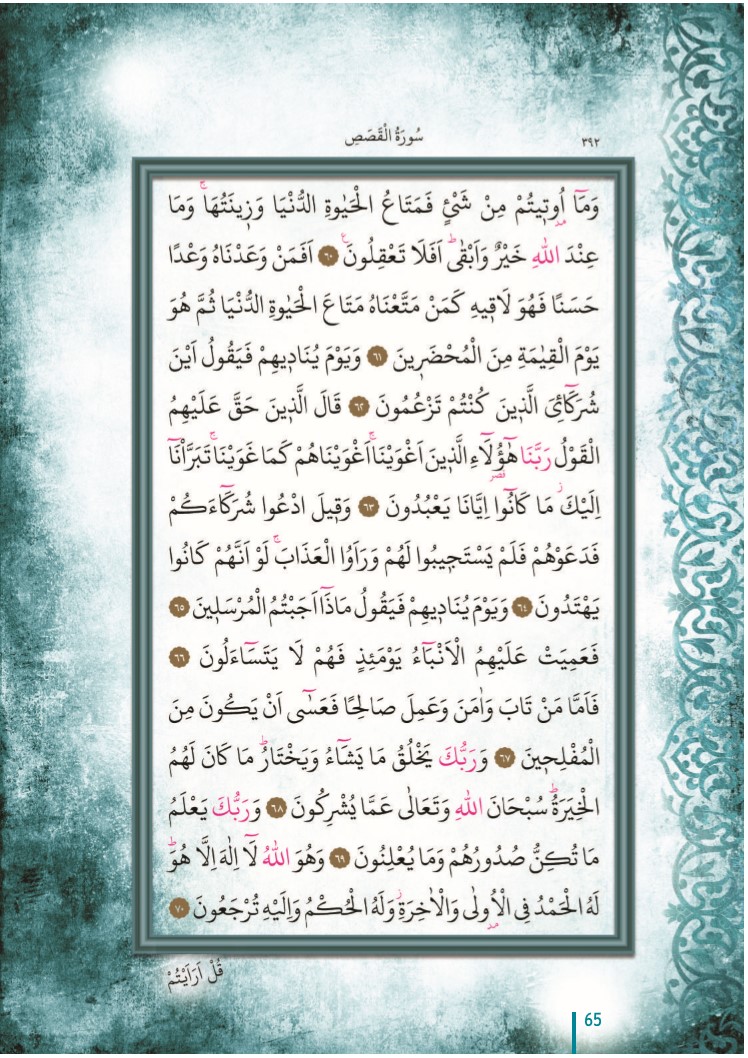 ٣٩٢ سُورَةُ الْقَصَصِ
وَمَٓا اُو۫ت۪يتُمْ مِنْ شَيْئٍ فَمَتَاعُ الْحَيٰوةِ الدُّنْيَا وَز۪ينَتُهَاۚ وَمَا
عِنْدَ اللّٰهِ خَيْرٌ وَاَبْقٰىۜ اَفَلَا تَعْقِلُونَ۟ ٦٠ اَفَمَنْ وَعَدْنَاهُ وَعْدًا
حَسَنًا فَهُوَ لَاق۪يهِ كَمَنْ مَتَّعْنَاهُ مَتَاعَ الْحَيٰوةِ الدُّنْيَا ثُمَّ هُوَ
يَوْمَ الْقِيٰمَةِ مِنَ الْمُحْضَر۪ينَ ٦١ وَيَوْمَ يُنَاد۪يهِمْ فَيَقُولُ اَيْنَ
شُرَكَٓائِيَ الَّذ۪ينَ كُنْتُمْ تَزْعُمُونَ ٦٢ قَالَ الَّذ۪ينَ حَقَّ عَلَيْهِمُ
الْقَوْلُ رَبَّنَا هٰٓؤُ۬لَٓاءِ الَّذ۪ينَ اَغْوَيْنَاۚ اَغْوَيْنَاهُمْ كَمَا غَوَيْنَاۚ تَبَرَّاْنَٓا
اِلَيْكَۘ مَا كَانُٓوا اِيَّانَا يَعْبُدُونَ ٦٣ وَق۪يلَ ادْعُوا شُرَكَٓاءَكُمْ
فَدَعَوْهُمْ فَلَمْ يَسْتَج۪يبُوا لَهُمْ وَرَاَوُا الْعَذَابَۚ لَوْ اَنَّهُمْ كَانُوا
يَهْتَدُونَ ٦٤ وَيَوْمَ يُنَاد۪يهِمْ فَيَقُولُ مَاذَٓا اَجَبْتُمُ الْمُرْسَل۪ينَ ٦٥
فَعَمِيَتْ عَلَيْهِمُ الْاَنْبَٓاءُ يَوْمَئِذٍ فَهُمْ لَا يَتَسَٓاءَلُونَ ٦٦
فَاَمَّا مَنْ تَابَ وَاٰمَنَ وَعَمِلَ صَالِحًا فَعَسٰٓى اَنْ يَكُونَ مِنَ
الْمُفْلِح۪ينَ ٦٧ وَرَبُّكَ يَخْلُقُ مَا يَشَٓاءُ وَيَخْتَارُۜ مَا كَانَ لَهُمُ
الْخِيَرَةُۜ سُبْحَانَ اللّٰهِ وَتَعَالٰى عَمَّا يُشْرِكُونَ ٦٨ وَرَبُّكَ يَعْلَمُ
مَا تُكِنُّ صُدُورُهُمْ وَمَا يُعْلِنُونَ ٦٩ وَهُوَ اللّٰهُ لَٓا اِلٰهَ اِلَّا هُوَۜ
لَهُ الْحَمْدُ فِي الْاُو۫لٰى وَالْاٰخِرَةِۘ وَلَهُ الْحُكْمُ وَاِلَيْهِ تُرْجَعُونَ ٧٠
قُلْ اَرَاَيْتُمْ
65